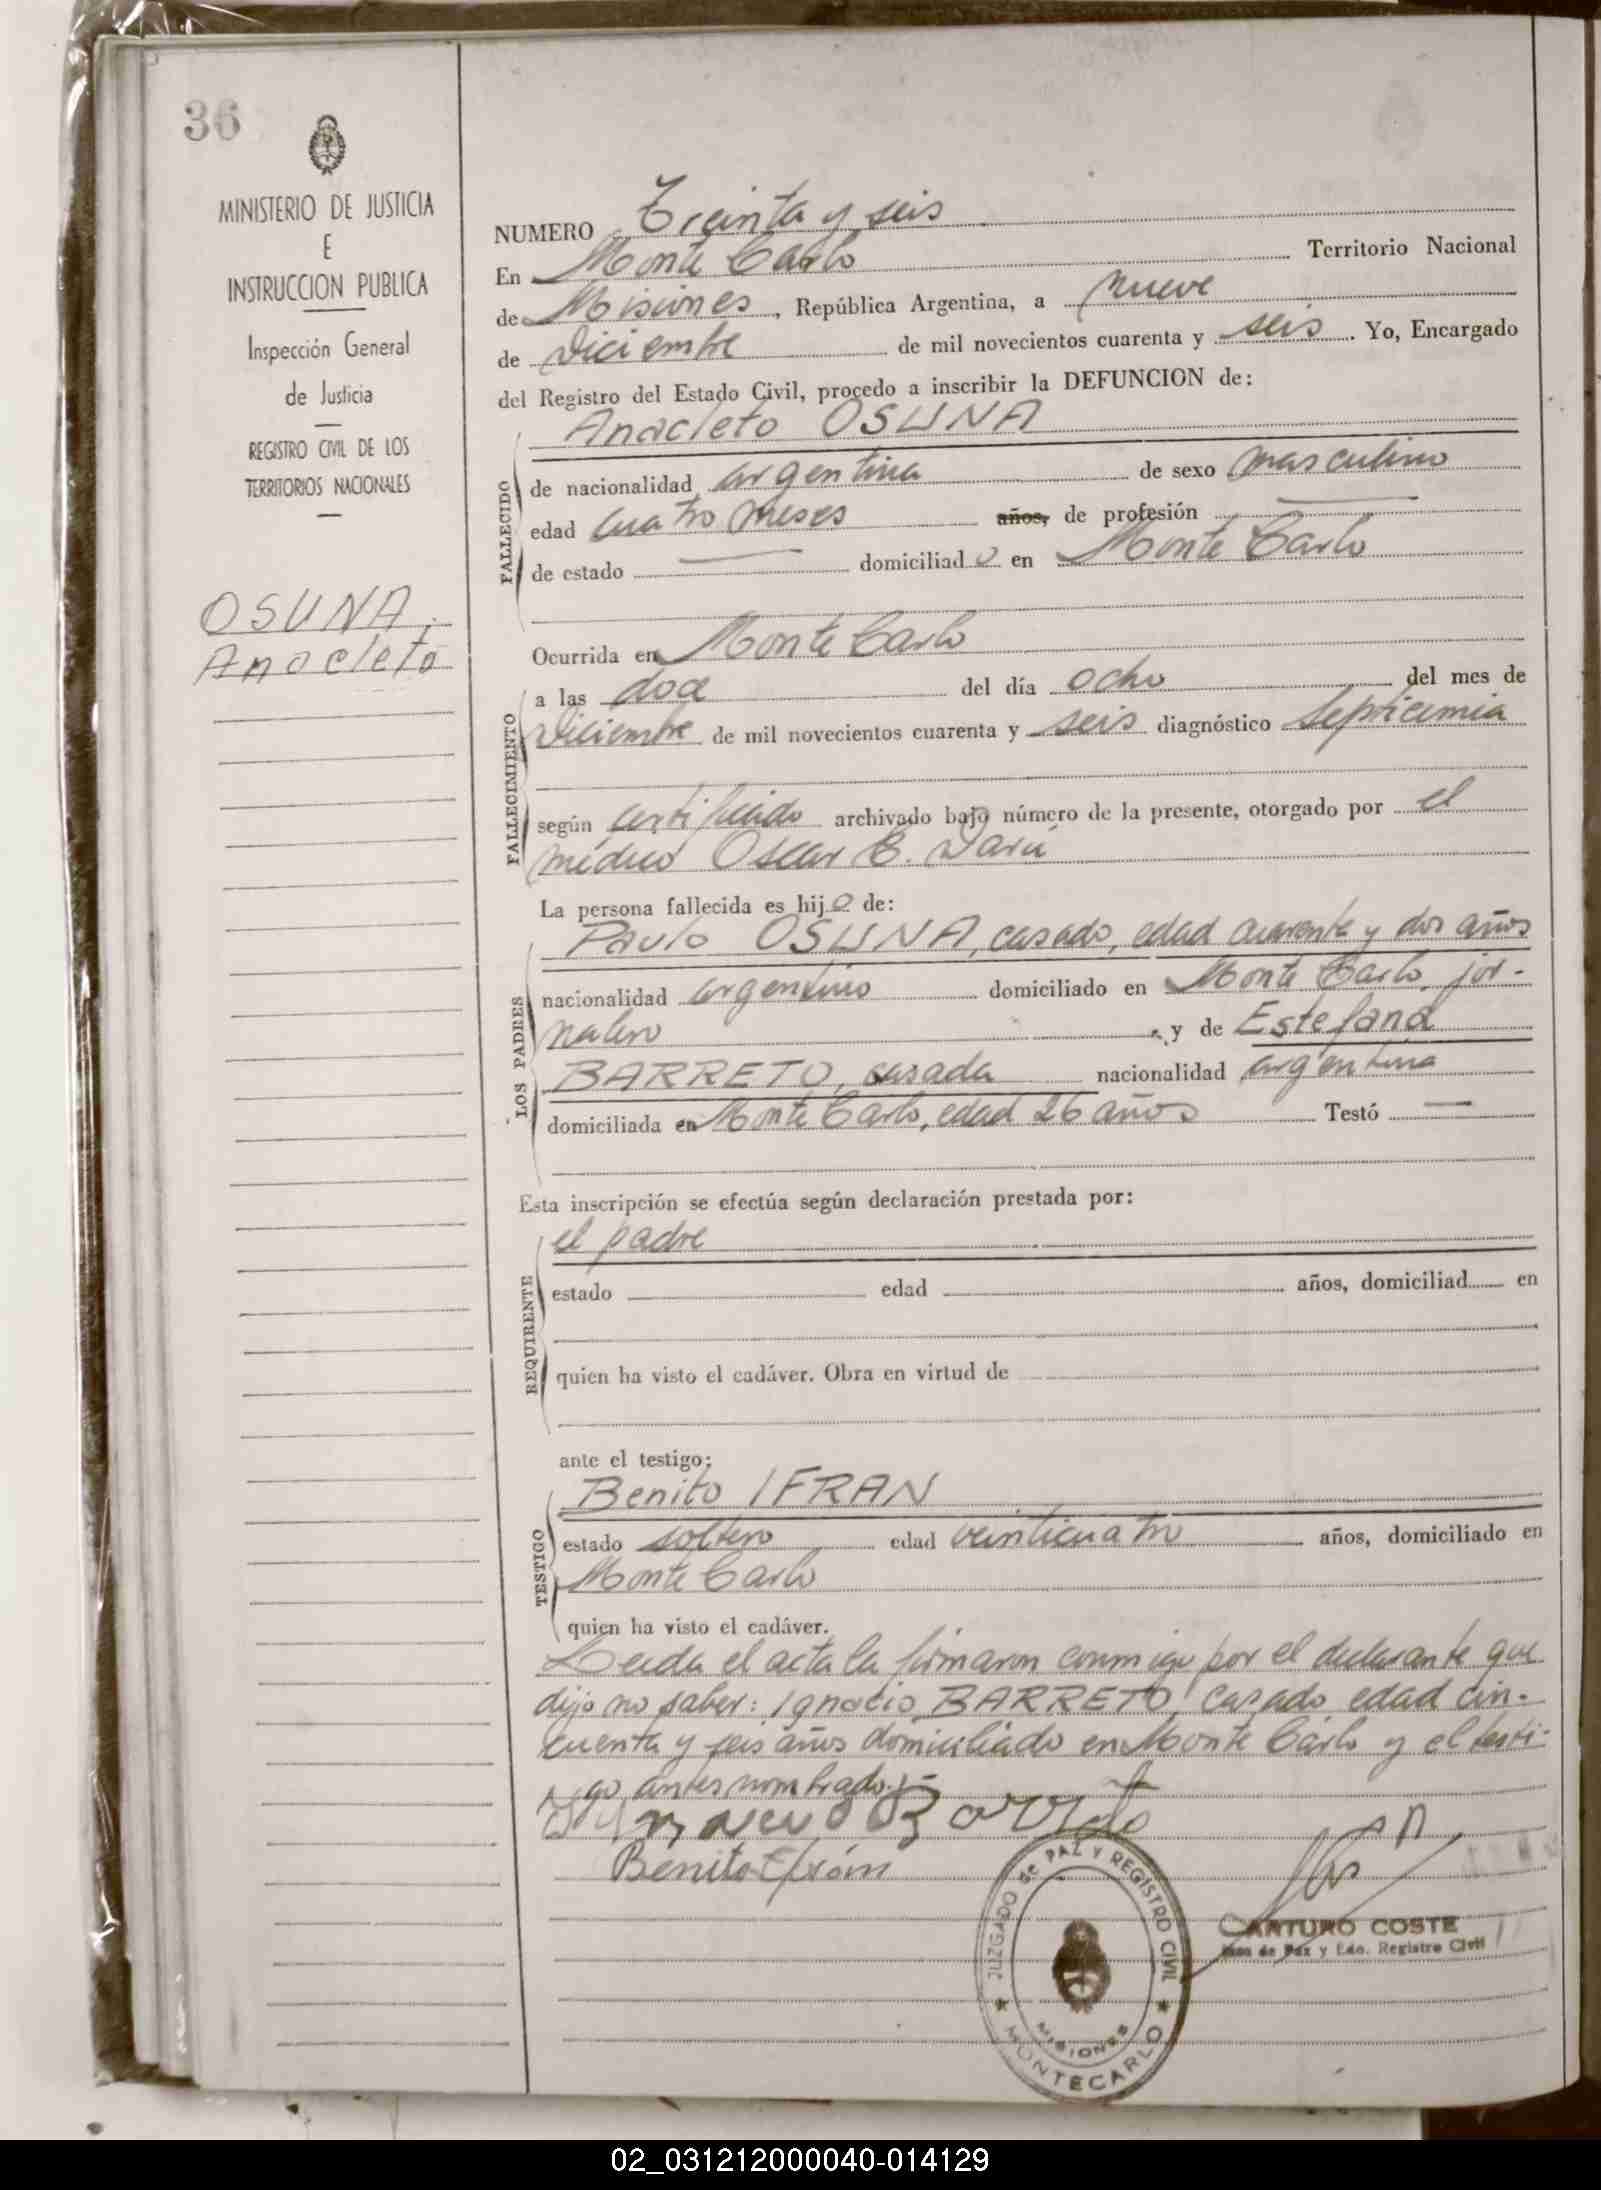 36
MINISTERIO DE JUSTICIA
E
INSTRUCCION PUBLICA
Inspección General
de Justicia
REGISTRO CIVIL DE LOS
TERRITORIOS NACIONALES
OSUNA,
Anacleto
NUMERO Treinta y seis
En Monte Carlo Territorio Nacional
de Misiones, República Argentina, a nueve
de Diciembre de mil novecientos cuarenta y seis. Yo, Encargado
del Registro del Estado Civil, procedo a inscribir la DEFUNCION de:
Anacleto OSUNA
FALLECIDO
de nacionalidad argentina de sexo masculino
edad cuatro meses años, de profesión
de estado domiciliado en Monte Carlo
Ocurrida en Monte Carlo
FALLECIMIENTO
a las doce del día ocho del mes de
Diciembre de mil novecientos cuarenta y seis diagnóstico Septicemia
según certificado archivado bajo número de la presente, otorgado por el
médico Oscar C. Darú
La persona fallecida es hijo de:
LOS PADRES
Paulo OSUNA, casado, edad cuarenta y dos años
nacionalidad argentino domiciliado en Monte Carlo, jor-
nalero y de Estefana
BARRETO, casada nacionalidad argentina
domiciliada en Monte Carlo, edad 26 años Testó —
Esta inscripción se efectúa según declaración prestada por:
REQUIRENTE
el padre
estado edad años, domiciliad en
quien ha visto el cadáver. Obra en virtud de
ante el testigo:
TESTIGO
Benito IFRAN
estado soltero edad veinticuatro años, domiciliado en
Monte Carlo
quien ha visto el cadáver.
Leida el acta la firmaron conmigo por el declarante que
dijo no saber: Ignacio BARRETO, casado edad cin-
cuenta y seis años domiciliado en Monte Carlo y el testi-
go antes nombrado.-
Ignacio Barreto
Benito Ifrán
JUZGADO de PAZ Y REGISTRO CIVIL
MISIONES
MONTECARLO
ARTURO COSTE
Juez de Paz y Edo. Registro Civil
02_031212000040-014129